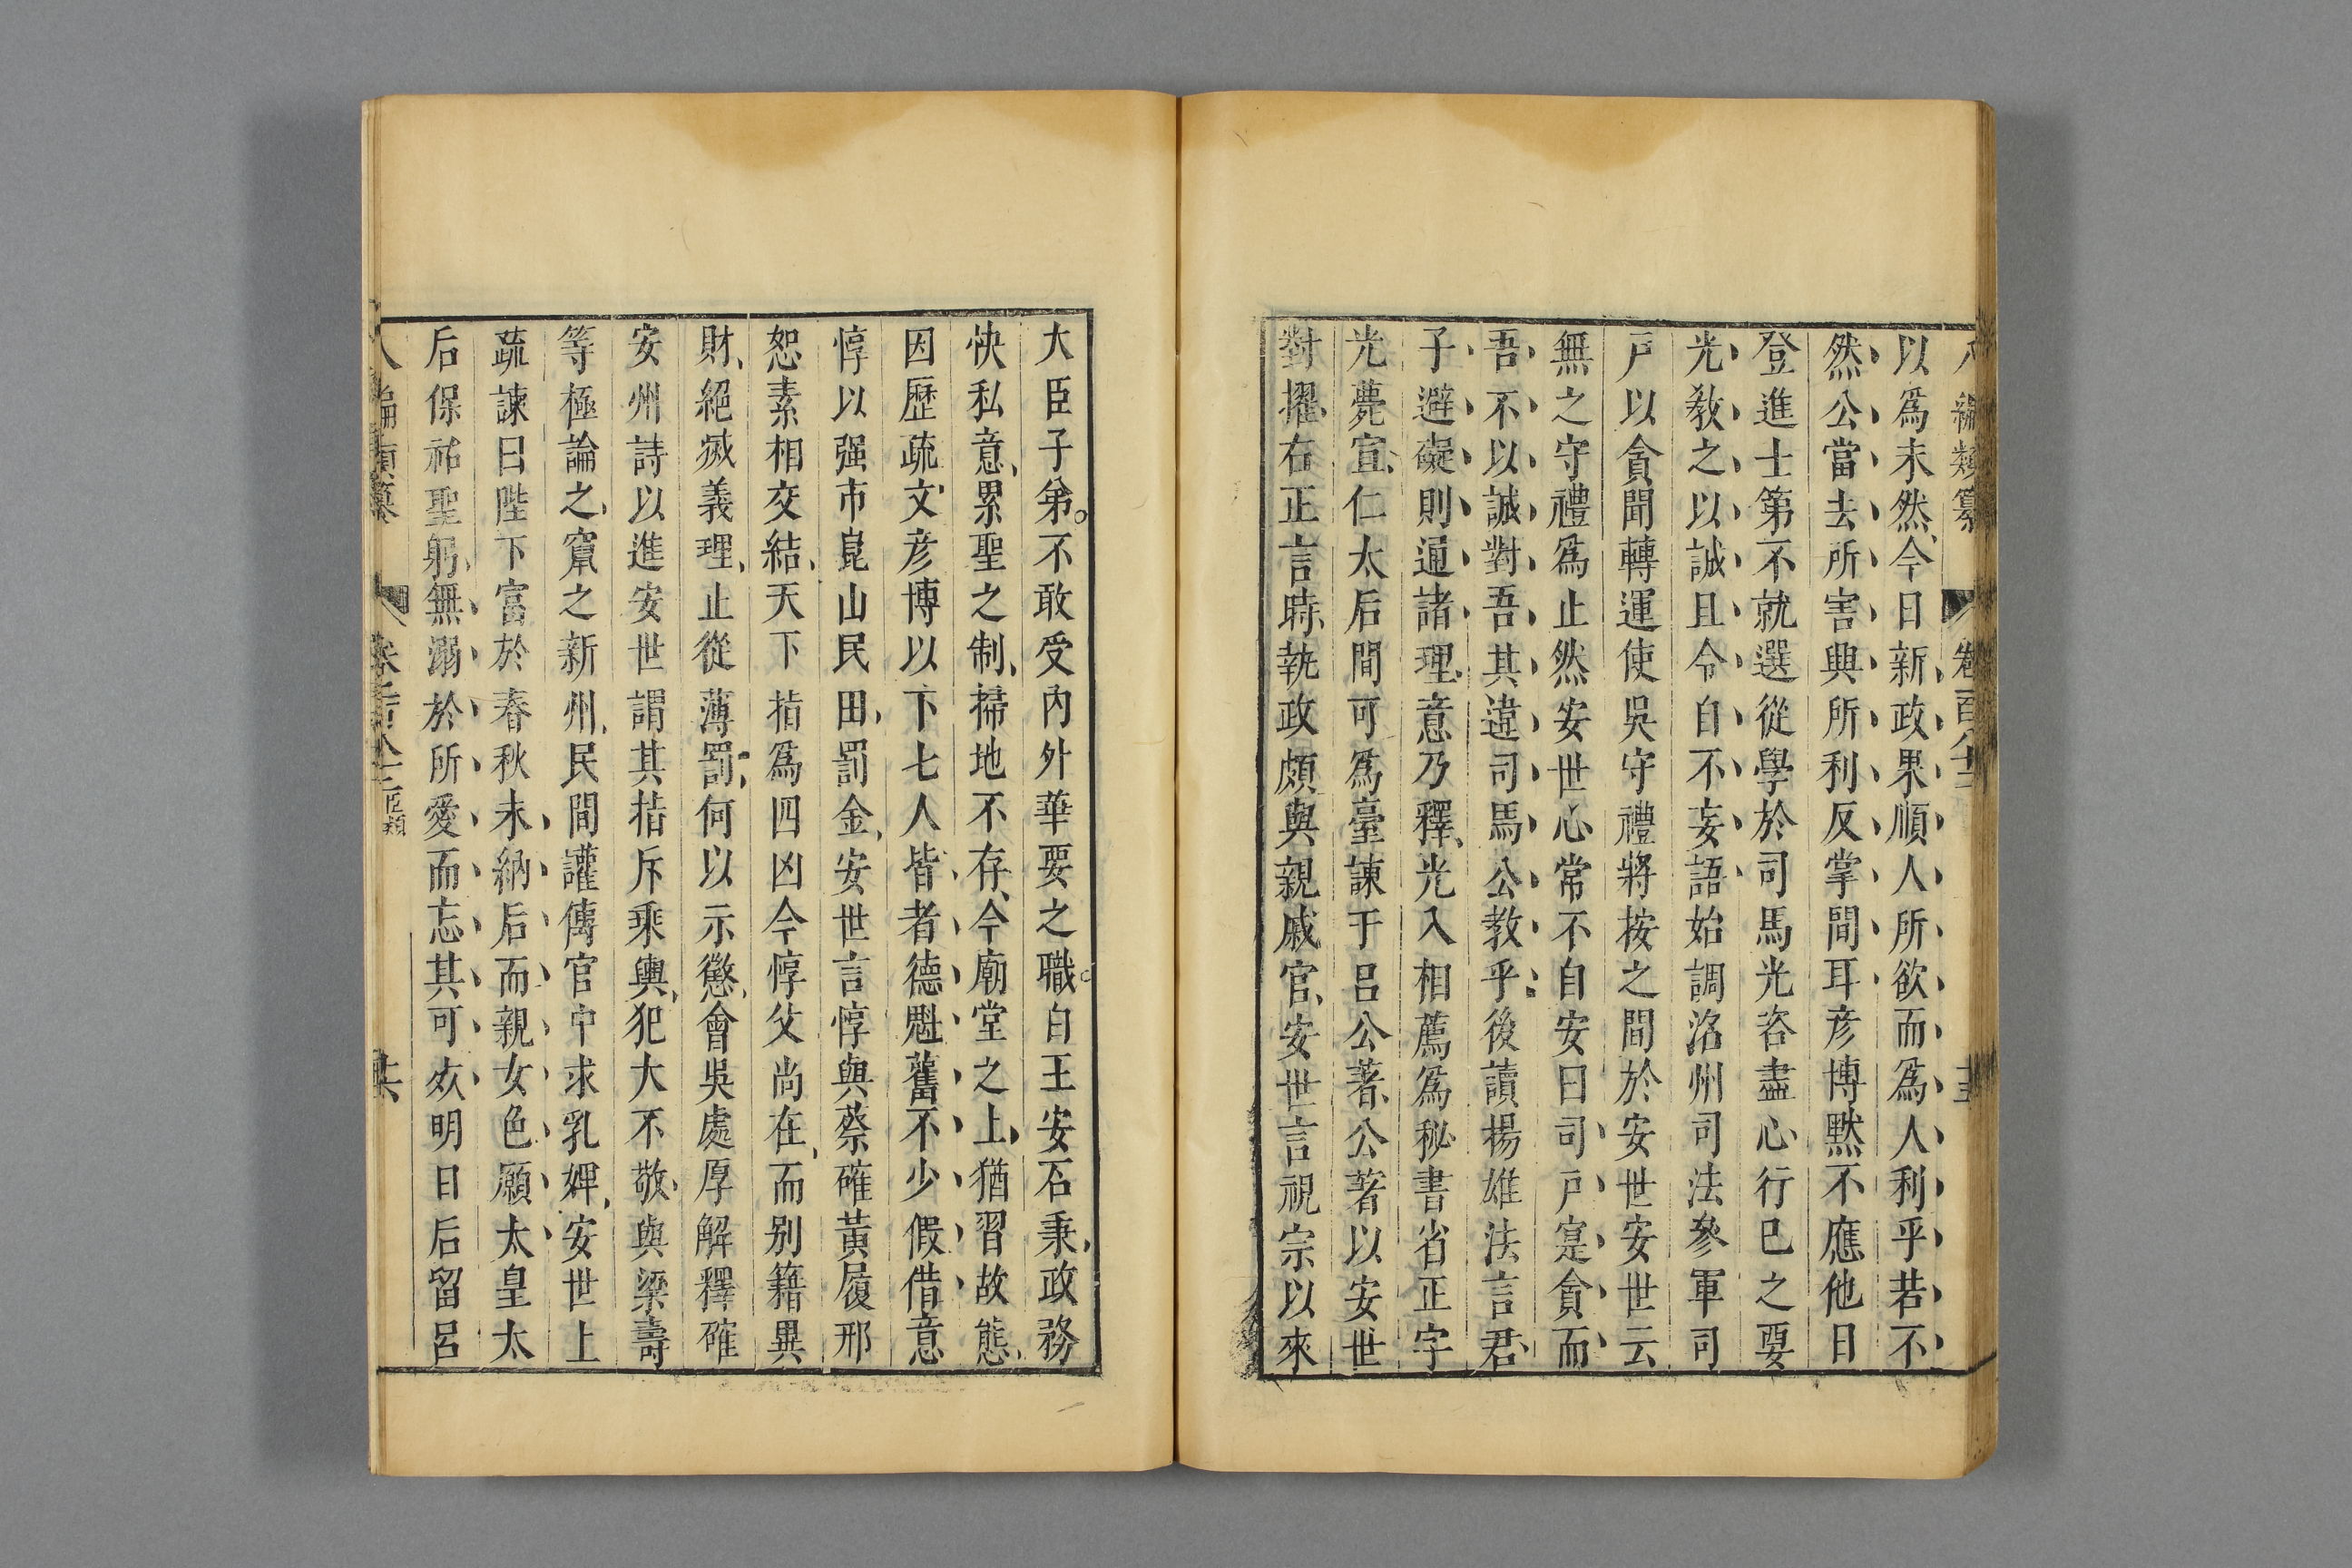 八編類纂 卷百八十二
以爲未然今日新政果順人所欲而爲人利乎若不
然公當去所害興所利反掌間耳彦博黙不應他日
登進士第不就選從學於司馬光咨盡心行已之要
光敎之以誠且令自不妄語始調洺州司法參軍司
戸以貪聞轉運使吳守禮將按之間於安世安世云
無之守禮爲止然安世心常不自安曰司戸寔貪而
吾不以誠對吾其違司馬公敎乎後讀揚雄法言君
子避礙則通諸理意乃釋光入相薦爲秘書省正字
光薨宣仁太后間可爲臺諫于呂公著公著以安世
對擢右正言時執政頗與親戚官安世言祖宗以來
大臣子弟不敢受内外華要之職自王安石秉政務
快私意累聖之制掃地不存今廟堂之上猶習故態
因歷疏文彦博以下七人皆耆德魁舊不少假借意
惇以强市崑山民田罰金安世言惇與蔡確黃履邢
恕素相交結天下指爲四凶今惇父尚在而别籍異
財絕滅義理止從薄罰何以示懲會吳處厚解釋確
安州詩以進安世謂其指斥乘輿犯大不敬與梁壽
等極論之竄之新州民間讙傳官中求乳婢安世上
疏諫曰陛下富於春秋未納后而親女色願太皇太
后保祐聖躬無溺於所愛而忘其可㳄明日后留呂
八編類纂